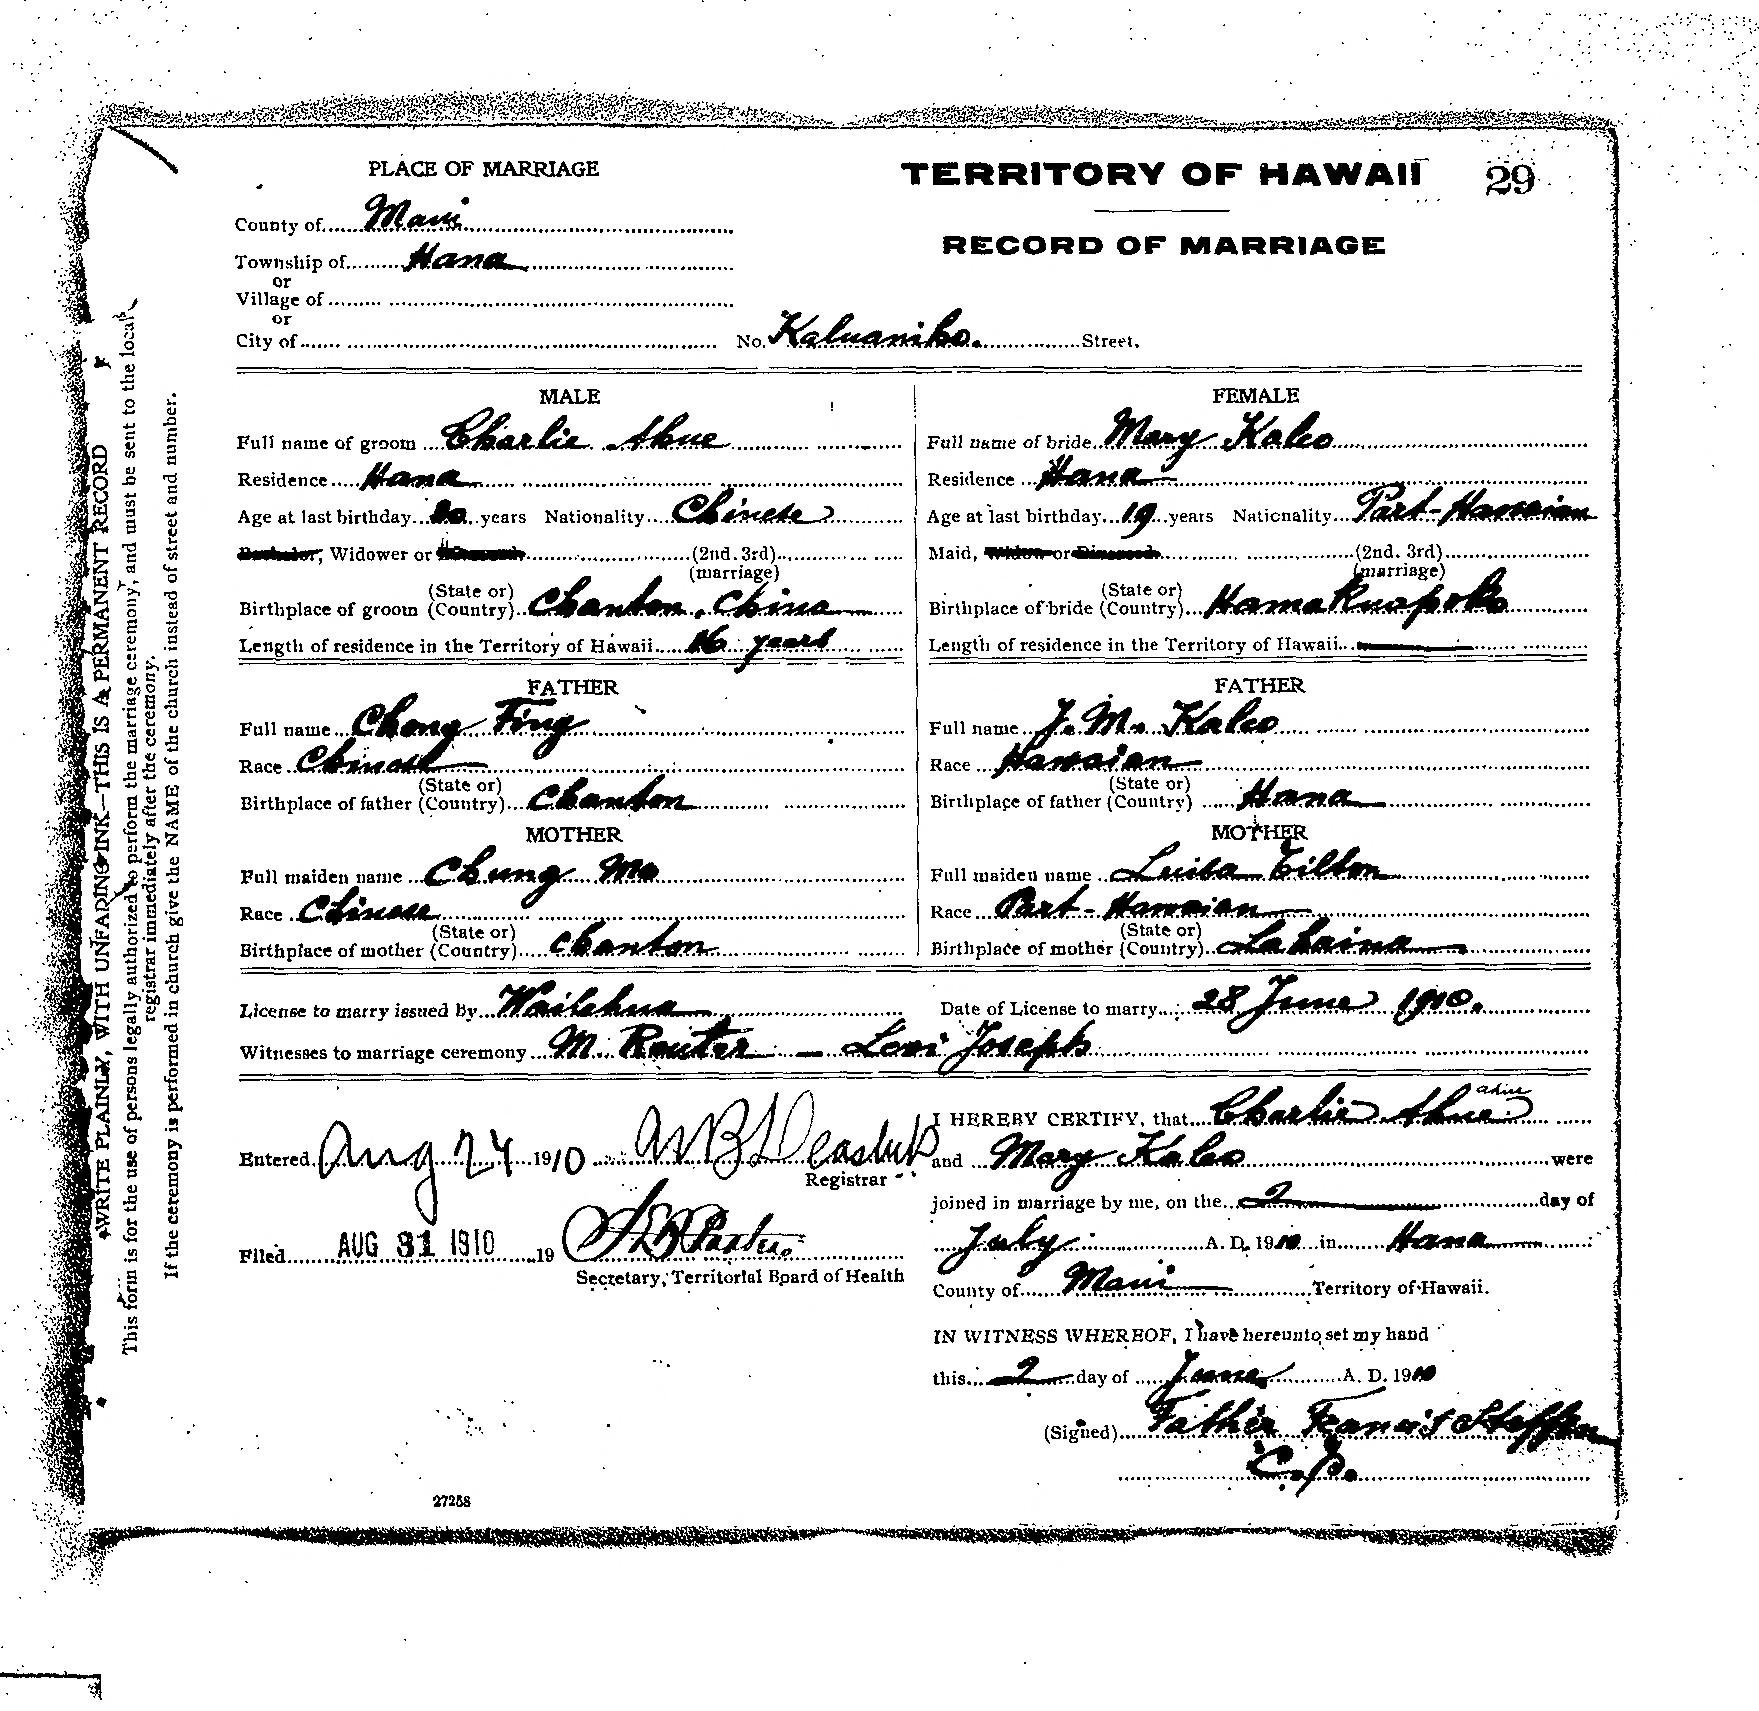 PLACE OF MARRIAGE
TERRITORY OF HAWAII 29
County of Maui
RECORD OF MARRIAGE
Township of Hana
or
Village of
or
City of No. Kaluaniko. Street.
MALE
Full name of groom Charlie Ahue
Residence Hana
Age at last birthday years Nationality Chinese
Bachelor, Widower or (2nd. 3rd)
(marriage)
Birthplace of groom (State or Country) Chanton, China
Length of residence in the Territory of Hawaii 16 years
FATHER
Full name Chong Fing
Race Chinese
Birthplace of father (State or Country) Chanton
MOTHER
Full maiden name Chung Ma
Race Chinese
Birthplace of mother (State or Country) Chanton
FEMALE
Full name of bride Mary Kaleo
Residence Hana
Age at last birthday 19 years Nationality Part-Hawaian
Maid, Widow or Divorced (2nd. 3rd)
(marriage)
Birthplace of bride (State or Country) Hamakuapoko
Length of residence in the Territory of Hawaii
FATHER
Full name J. M. Kaleo
Race Hawaian
Birthplace of father (State or Country) Hana
MOTHER
Full maiden name Luisa Tilton
Race Part-Hawaian
Birthplace of mother (State or Country) Lahaina
License to marry issued by Wailuku Date of License to marry 28 June 1910.
Witnesses to marriage ceremony M. Reuter - Levi Joseph
Entered Aug 24 1910
Registrar
Filed AUG 31 1910 19
Secretary, Territorial Board of Health
I HEREBY CERTIFY, that Charlie Ahue
and Mary Kaleo were
joined in marriage by me, on the 2 day of
July A. D. 1910 in Hana
County of Maui Territory of Hawaii.
IN WITNESS WHEREOF, I have hereunto set my hand
this 2 day of June A. D. 1910
(Signed) Father Francis Steffen
C. P.
27258
WRITE PLAINLY, WITH UNFADING INK—THIS IS A PERMANENT RECORD
This form is for the use of persons legally authorized to perform the marriage ceremony, and must be sent to the local
registrar immediately after the ceremony.
If the ceremony is performed in church give the NAME of the church instead of street and number.